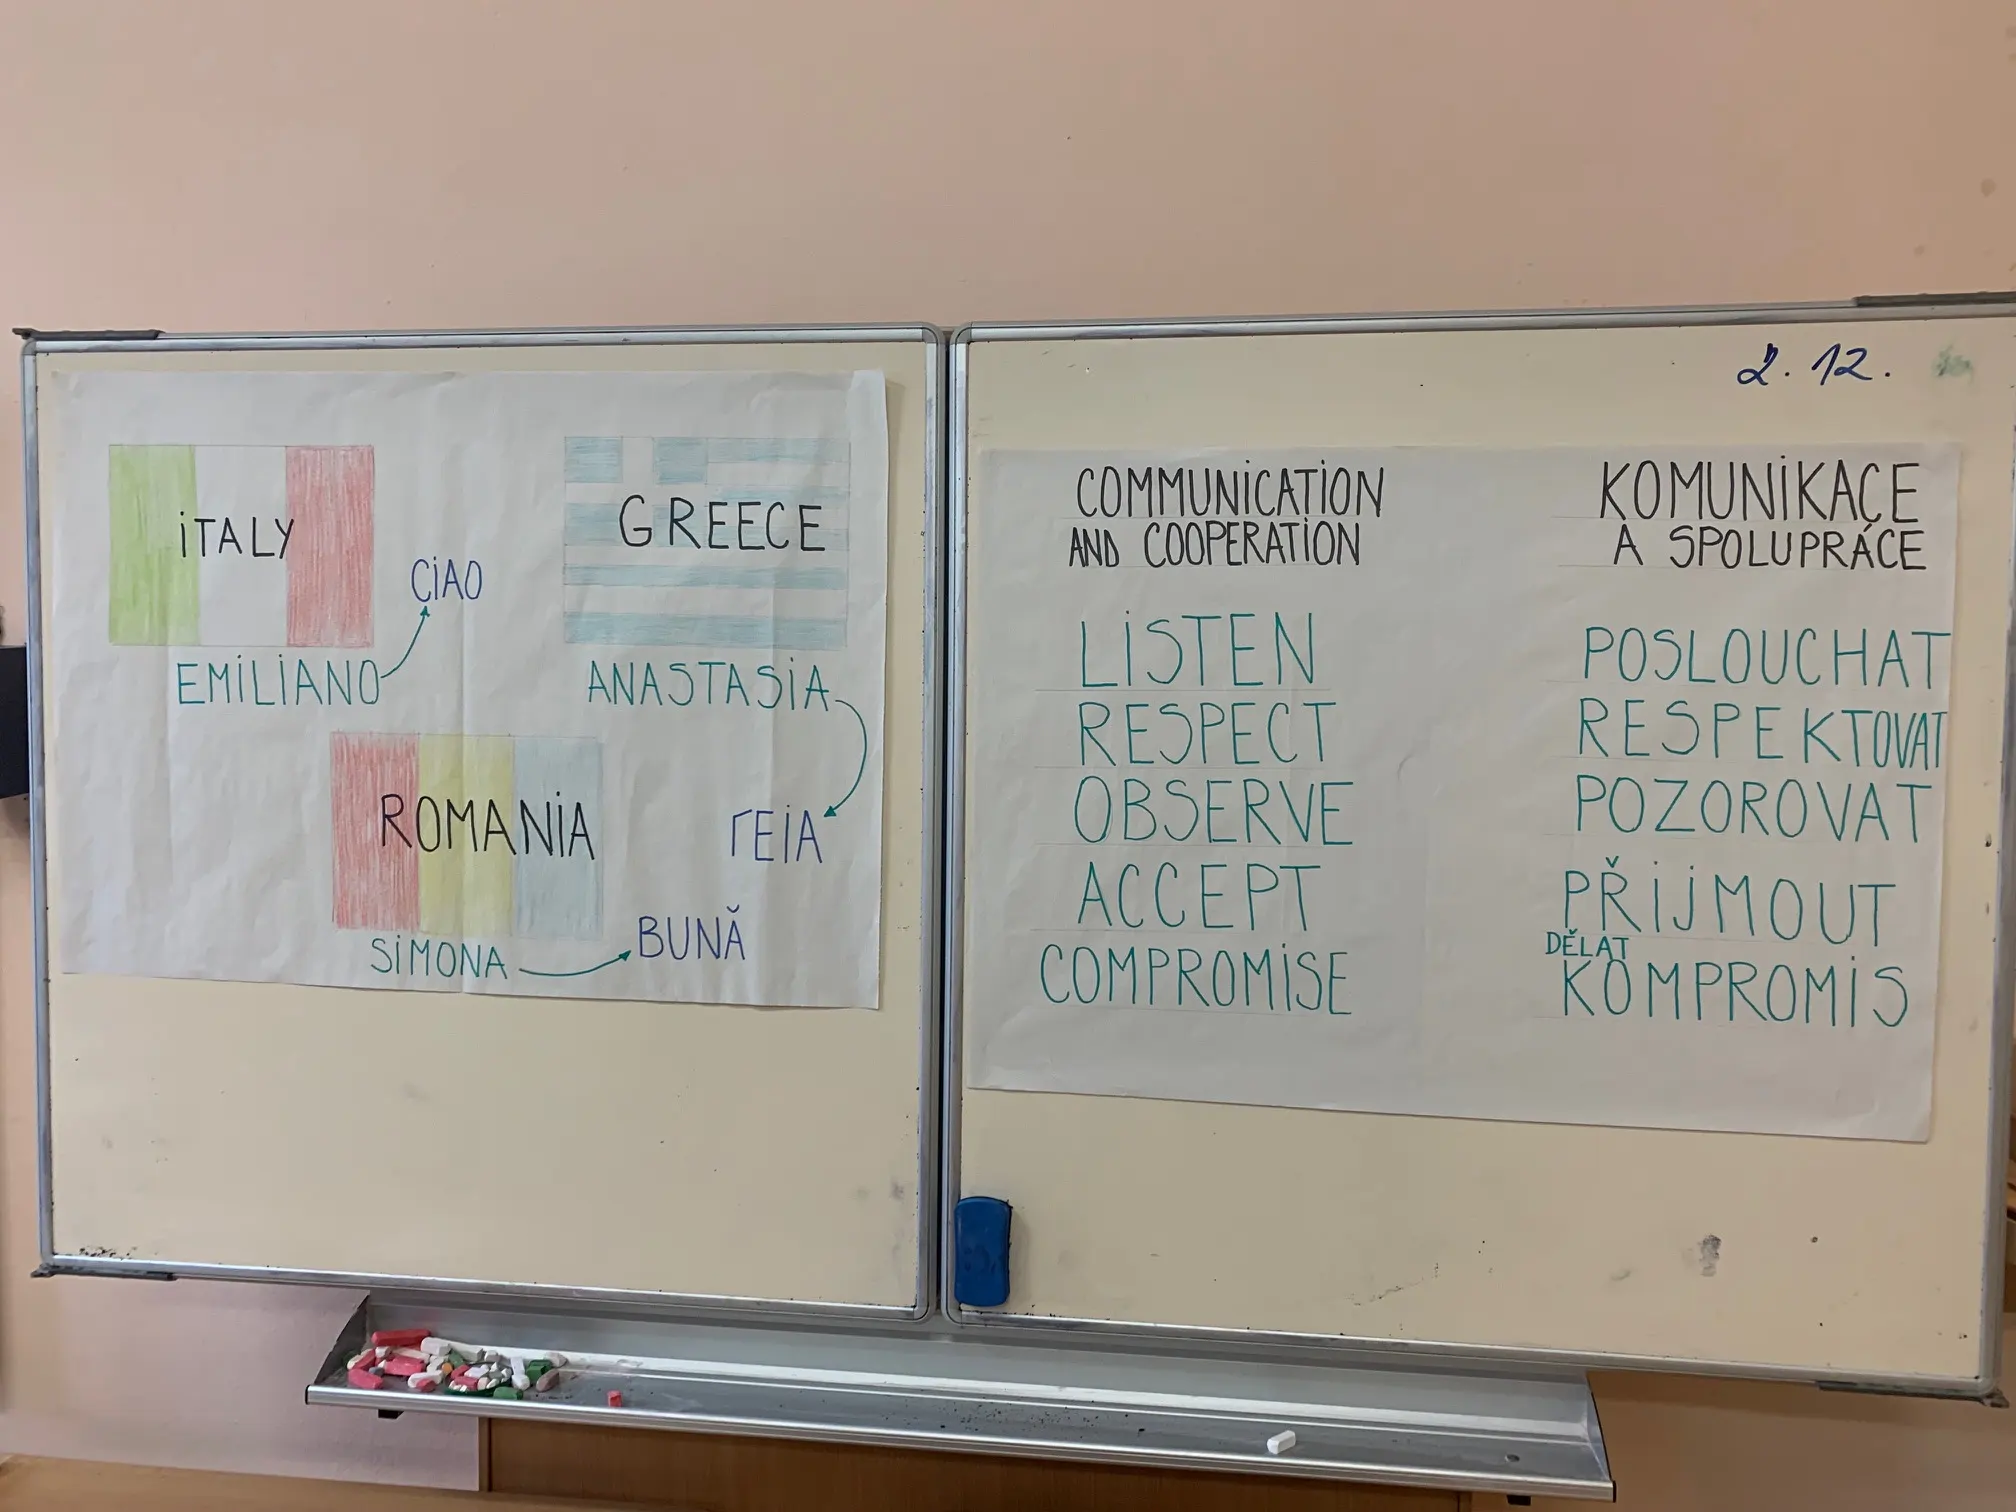 ITALY
CIAO
EMILIANO
GREECE
ANASTASIA
ΓEIA
ROMANIA
SIMONA
BUNĂ
2. 12.
COMMUNICATION
AND COOPERATION
LISTEN
RESPECT
OBSERVE
ACCEPT
COMPROMISE
KOMUNIKACE
A SPOLUPRÁCE
POSLOUCHAT
RESPEKTOVAT
POZOROVAT
PŘIJMOUT
DĚLAT
KOMPROMIS